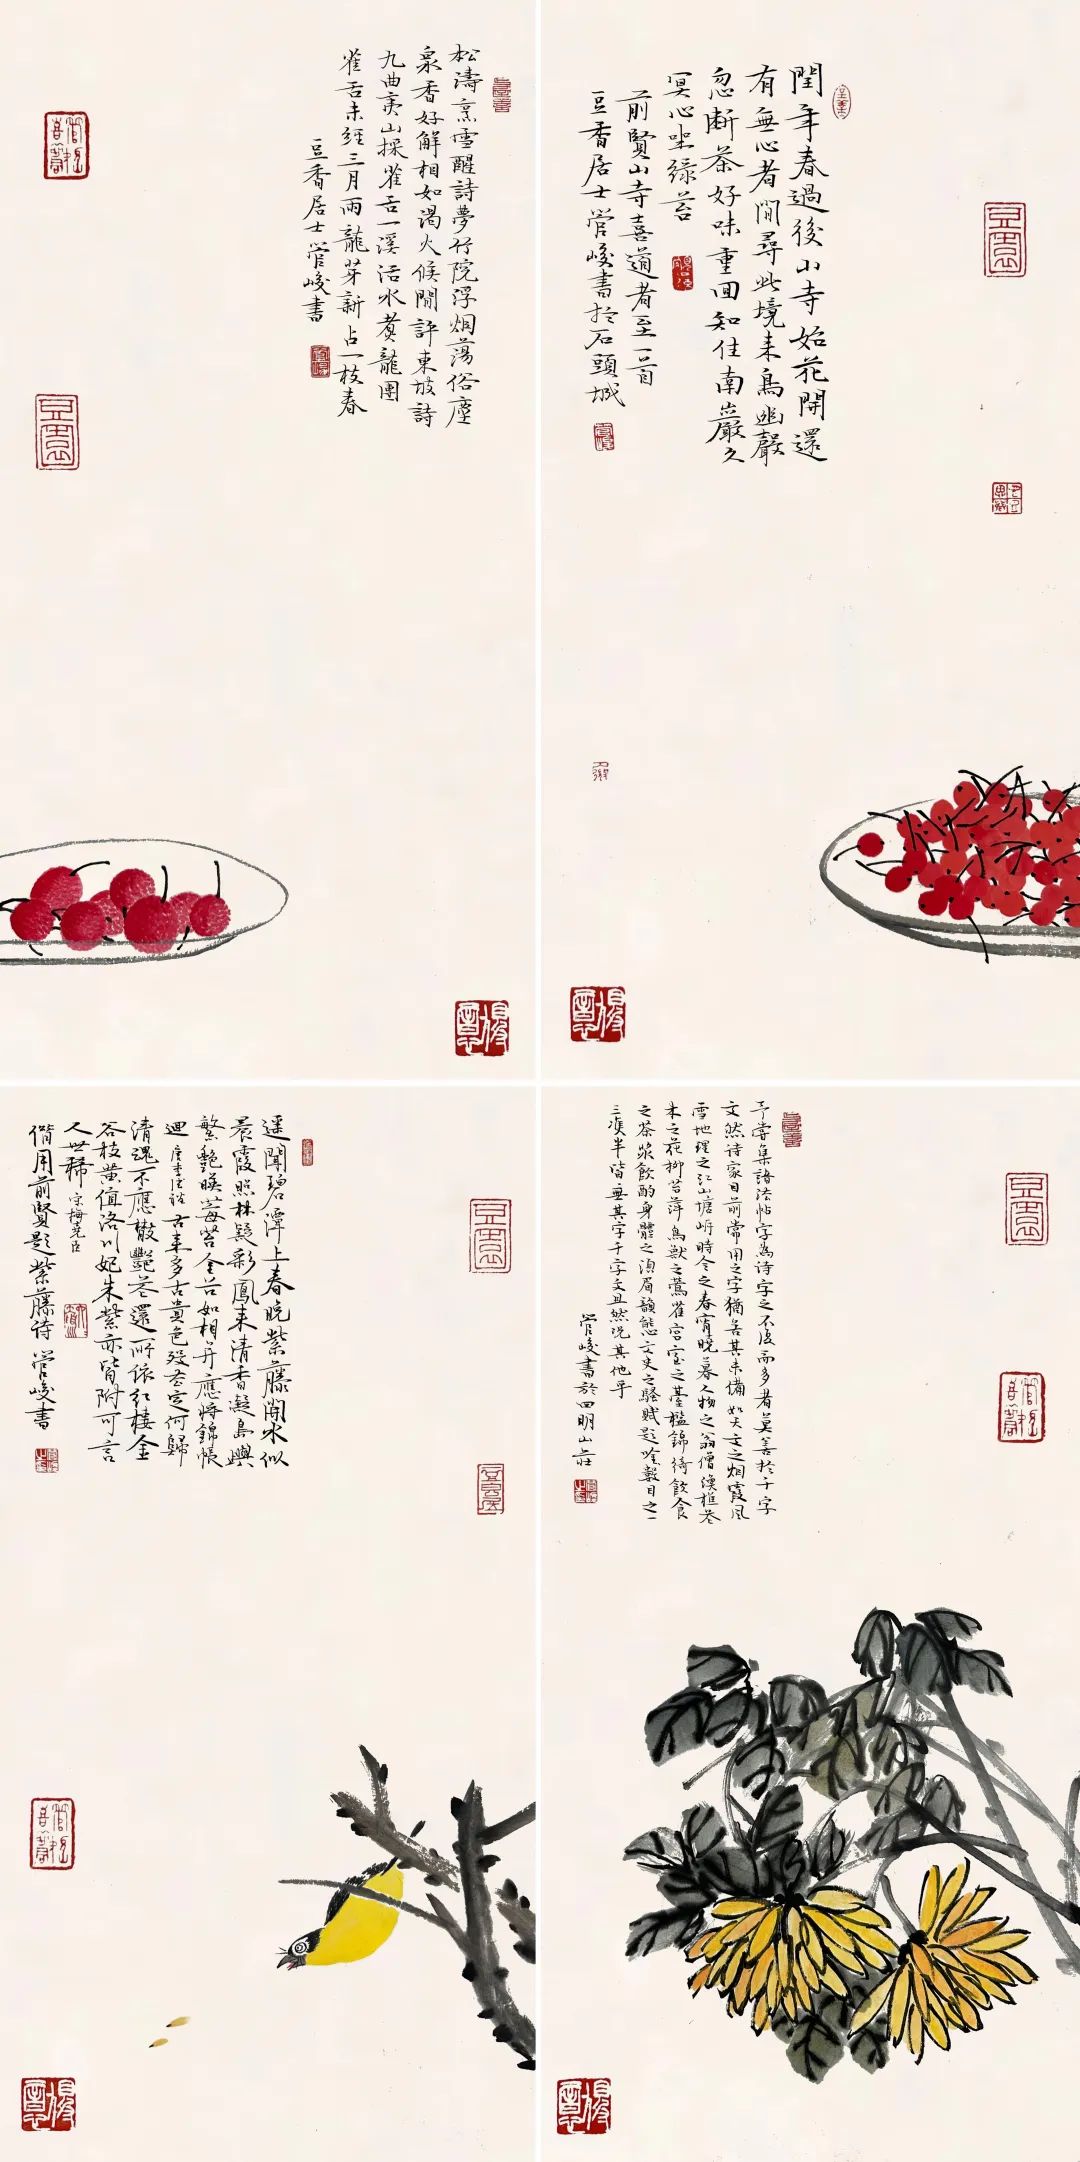 松濤烹雪醒詩夢竹院浮烟蕩俗塵
泉香好解相如渴火候閒評東坡詩
九曲夷山採雀舌一溪活水煮龍團
雀舌未經三月雨龍芽新占一枝春
豆香居士管峻書
閏年春過後山寺始花開還
有無心者閒尋此境來鳥幽聲
忽斷茶好味重回知住南巖久
冥心坐綠苔
前賢山寺喜道者至一首
豆香居士管峻書於石頭城
豆園
豆園
遥聞碧潭上春晚紫藤開水似
晨霞照林疑彩鳳來清香凝島嶼
繁艷映莓苔金谷如相并應將錦帳
迴 唐李德裕 古来多古貴色歿去定何歸
清魂不應散艷花還所依紅棲金
谷枝黄值洛川妃朱紫亦皆附可言
人世稀 宋梅堯臣
偕用前賢題紫藤詩 管峻書
豆園
予嘗集語法帖字為詩字之不復而多者莫善於千字
文然诗家目前常用之字猶苦其未備如天文之烟霞風
雪地理之江山塘岸時令之春宵曉暮人物之翁僧漁樵花
木之花柳苔萍鳥獸之鶯雀宫室之臺檻錦綺飲食
之茶漿飲酌身體之須眉韻態文史之騷賦題吟數目之一
三雙半皆無其字千字文且然况其他乎
管峻書於四明山莊
豆園